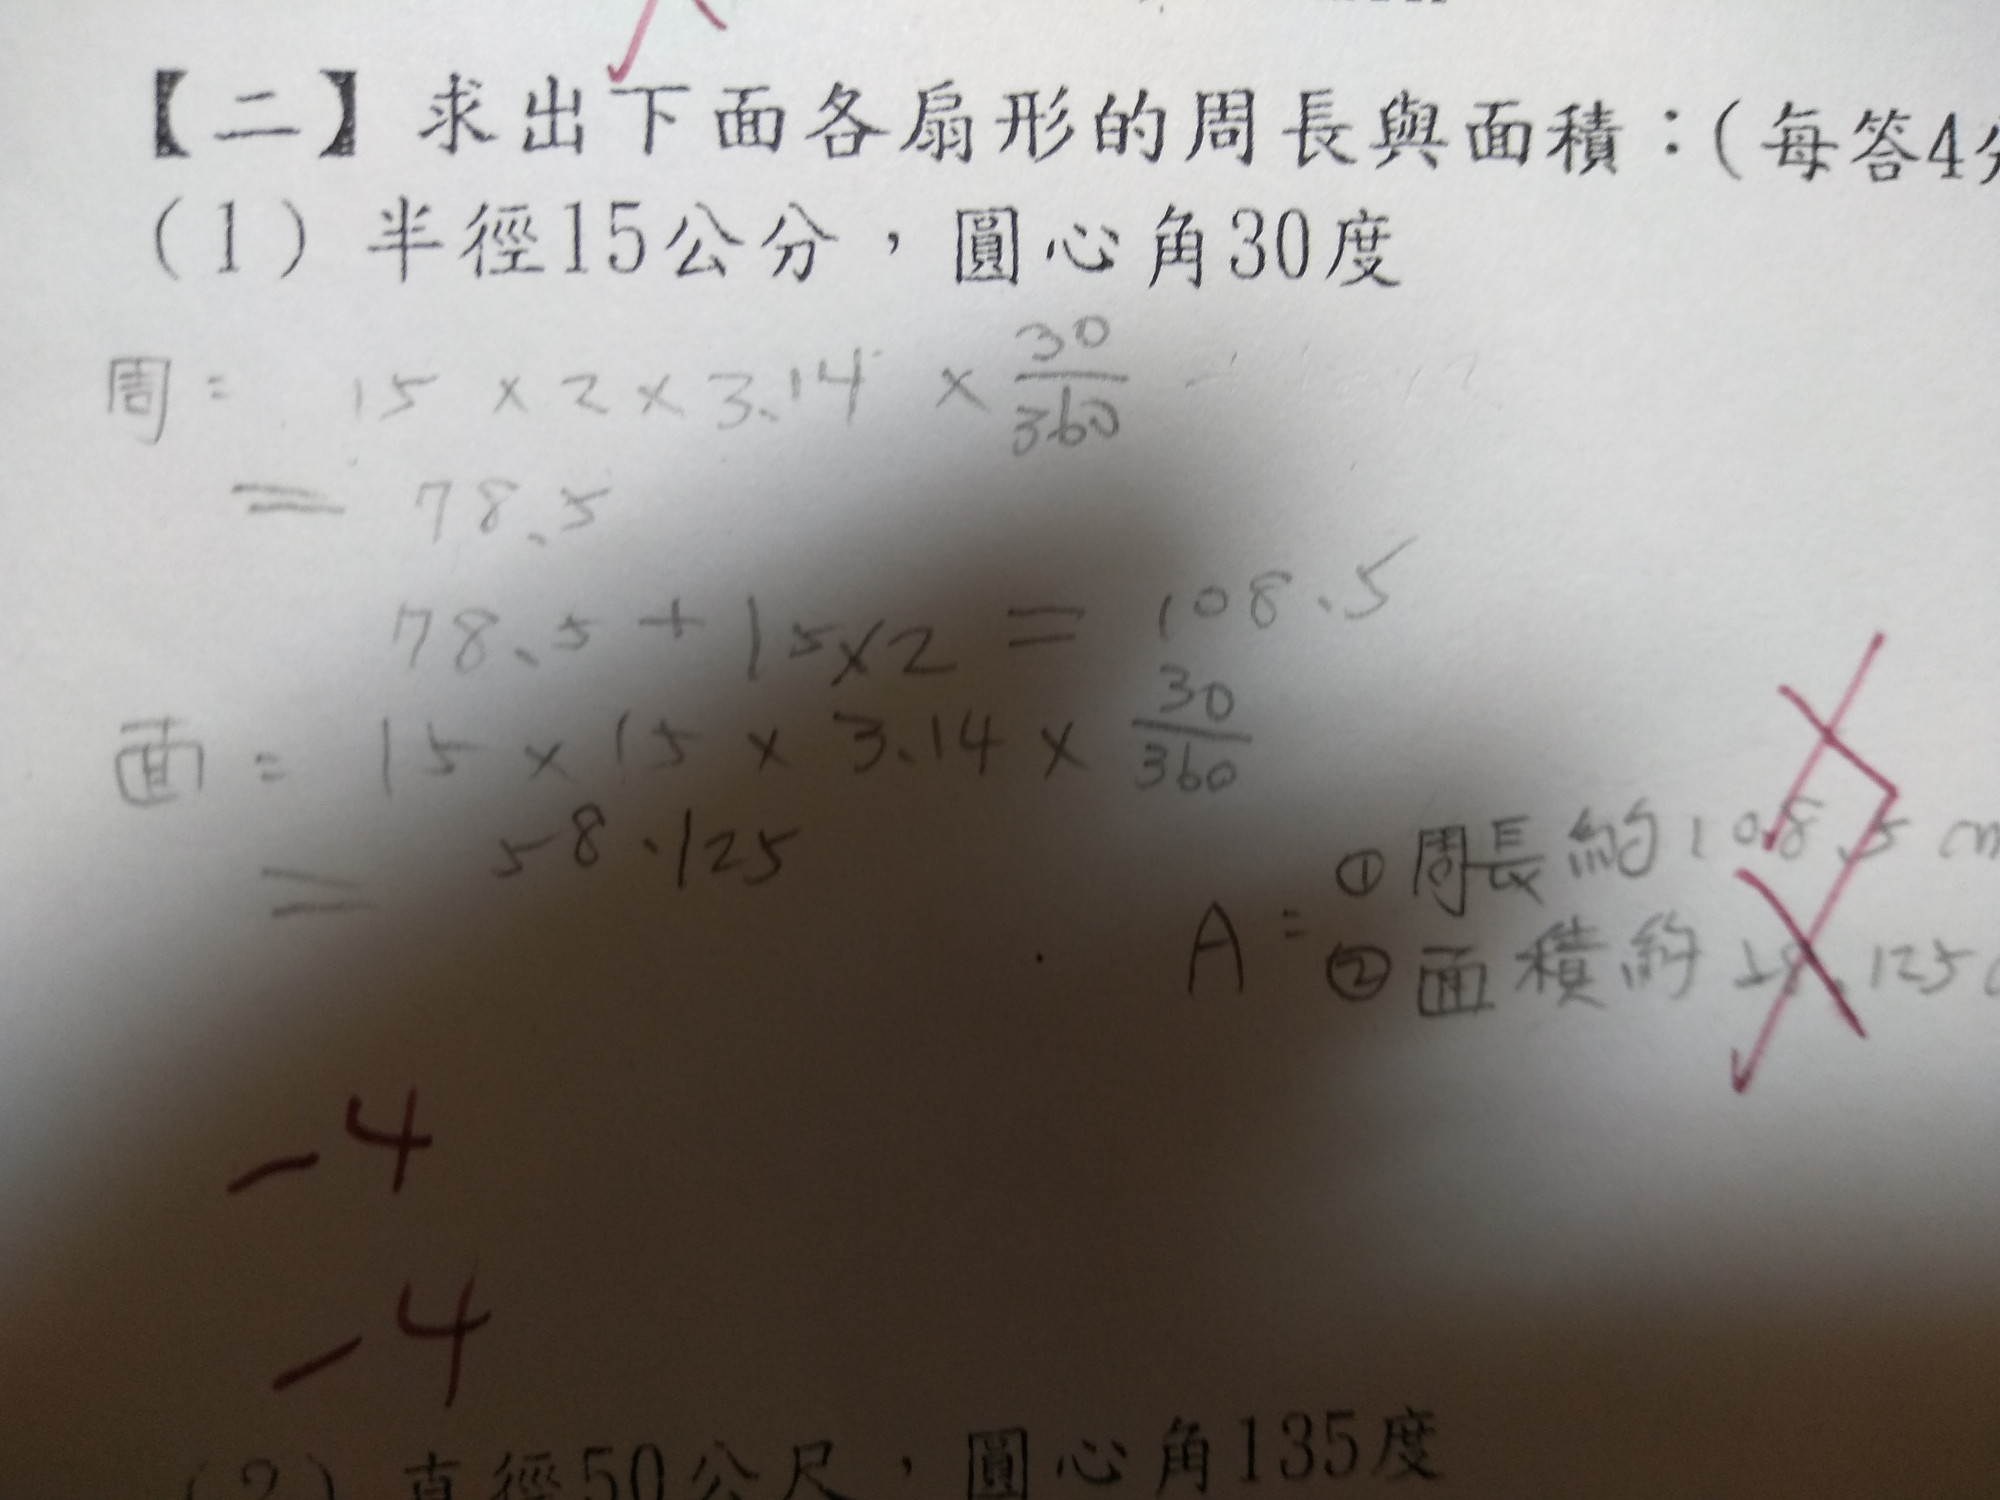 【二】求出下面各扇形的周長與面積：(每答4分
(1) 半徑15公分，圓心角30度
周= 15×2×3.14×30/360
= 78.5
78.5+15×2=108.5
面= 15×15×3.14×30/360
= 58.125
A= ①周長約108.5 cm
②面積約58.125
-4
-4
(2) 直徑50公尺，圓心角135度